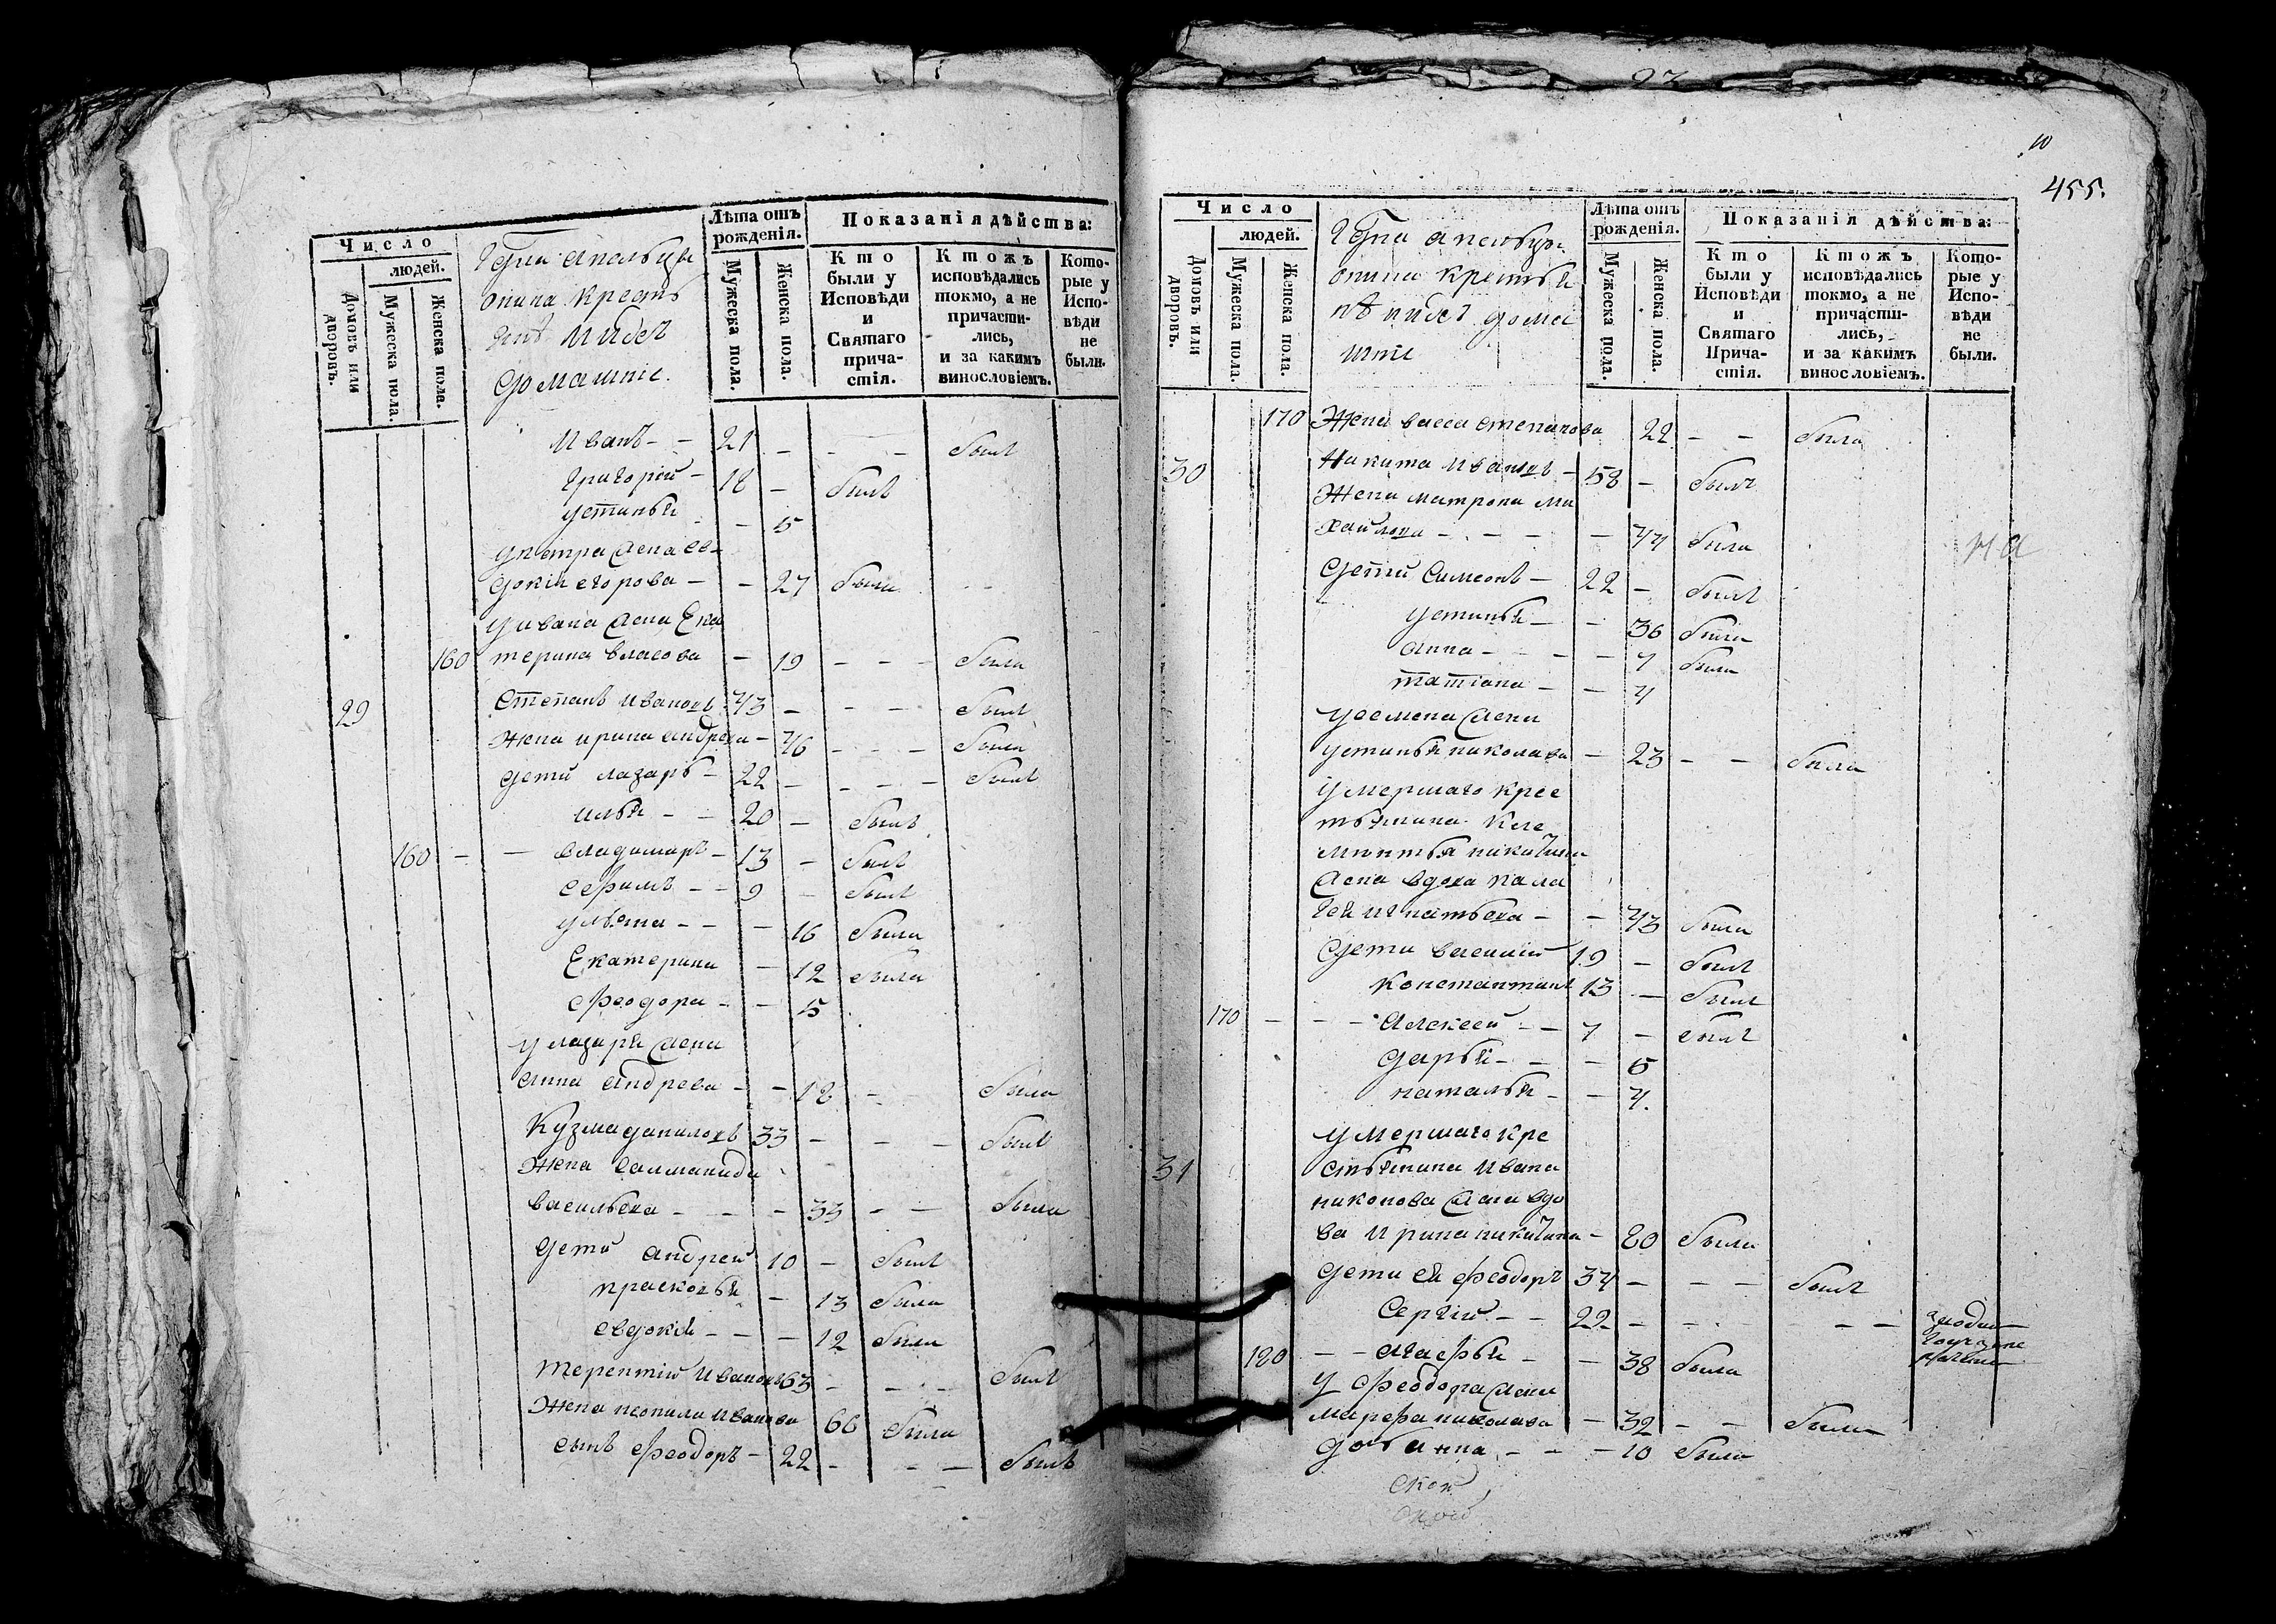 Число
людей.
Домовъ или дворовъ.
Мужеска пола.
Женска пола.
Лѣта отъ рожденія.
Мужеска пола.
Женска пола.
Показанія дѣйства:
Кто были у Исповѣди и Святаго причастія.
Ктожъ исповѣдались токмо, а не причастились, и за какимъ винословіемъ.
Которые у Исповѣди не были.
домашніе.
Иванъ - - 21 - - - былъ
Григорій - 18 - былъ
Устинья - 5
у петра жена ев
докія егорова - - 27 была
у ивана жена Ека
160 терина власова - 19 - - - была
29 Степанъ Ивановъ 43 - - - былъ
жена ирина андреева - 46 - - - была
дети лазарь - 22 - - - - былъ
илья - - 20 - былъ
160 - - владимиръ - 13 - былъ
ефимъ - - 9 - былъ
ульяна - - - 16 была
Екатерина - 12 была
феодора - - 5
у лазаря жена
анна андреева - - 18 - - была
Кузма даниловъ 33 - - - былъ
жена
васильева - - - 33 - - была
дети андрей 10 - былъ
прасковья - 13 была
евдокия - - - 12 была
терентій Ивановъ 63 - - - былъ
жена неонила иванова 66 была
сынъ феодоръ - 22 - - - былъ
10
455.
Число
людей.
Домовъ или дворовъ.
Мужеска пола.
Женска пола.
домашніе
Лѣта отъ рожденія.
Мужеска пола.
Женска пола.
Показанія дѣйства:
Кто были у Исповѣди и Святаго Причастія.
Ктожъ исповѣдались токмо, а не причастились, и за какимъ винословіемъ.
Которые у Исповѣди не были.
170 Жена васса степанова 22 - - была
30 Никита Ивановъ - 58 - былъ
Жена матрона ми
хайлова - - - - - 44 была
дети Симеонъ - 22 - былъ
устинья - - 36 была
анна - - - - 7 была
татіана - - 4
у семена жена
устинья николаева - 23 - - была
умершаго крес
тьянина
никитина
жена вдова пала
гея игнатьева - - 43 была
дети василий 19 - былъ
Константинъ 13 - былъ
170 - - - Алексей - - 7 - былъ
дарья - - - 5
наталья - - 4.
умершаго кре
31 стьянина ивана
никонова жена вдо
ва Ирина никитина - 80 была
дети ея феодоръ 34 - - - былъ
Сергій - - 22 - - - - -
180 - - агафья - - 38 была
у феодора жена
марфа николаева - 32 - - была
дочь анна - - - 10 была